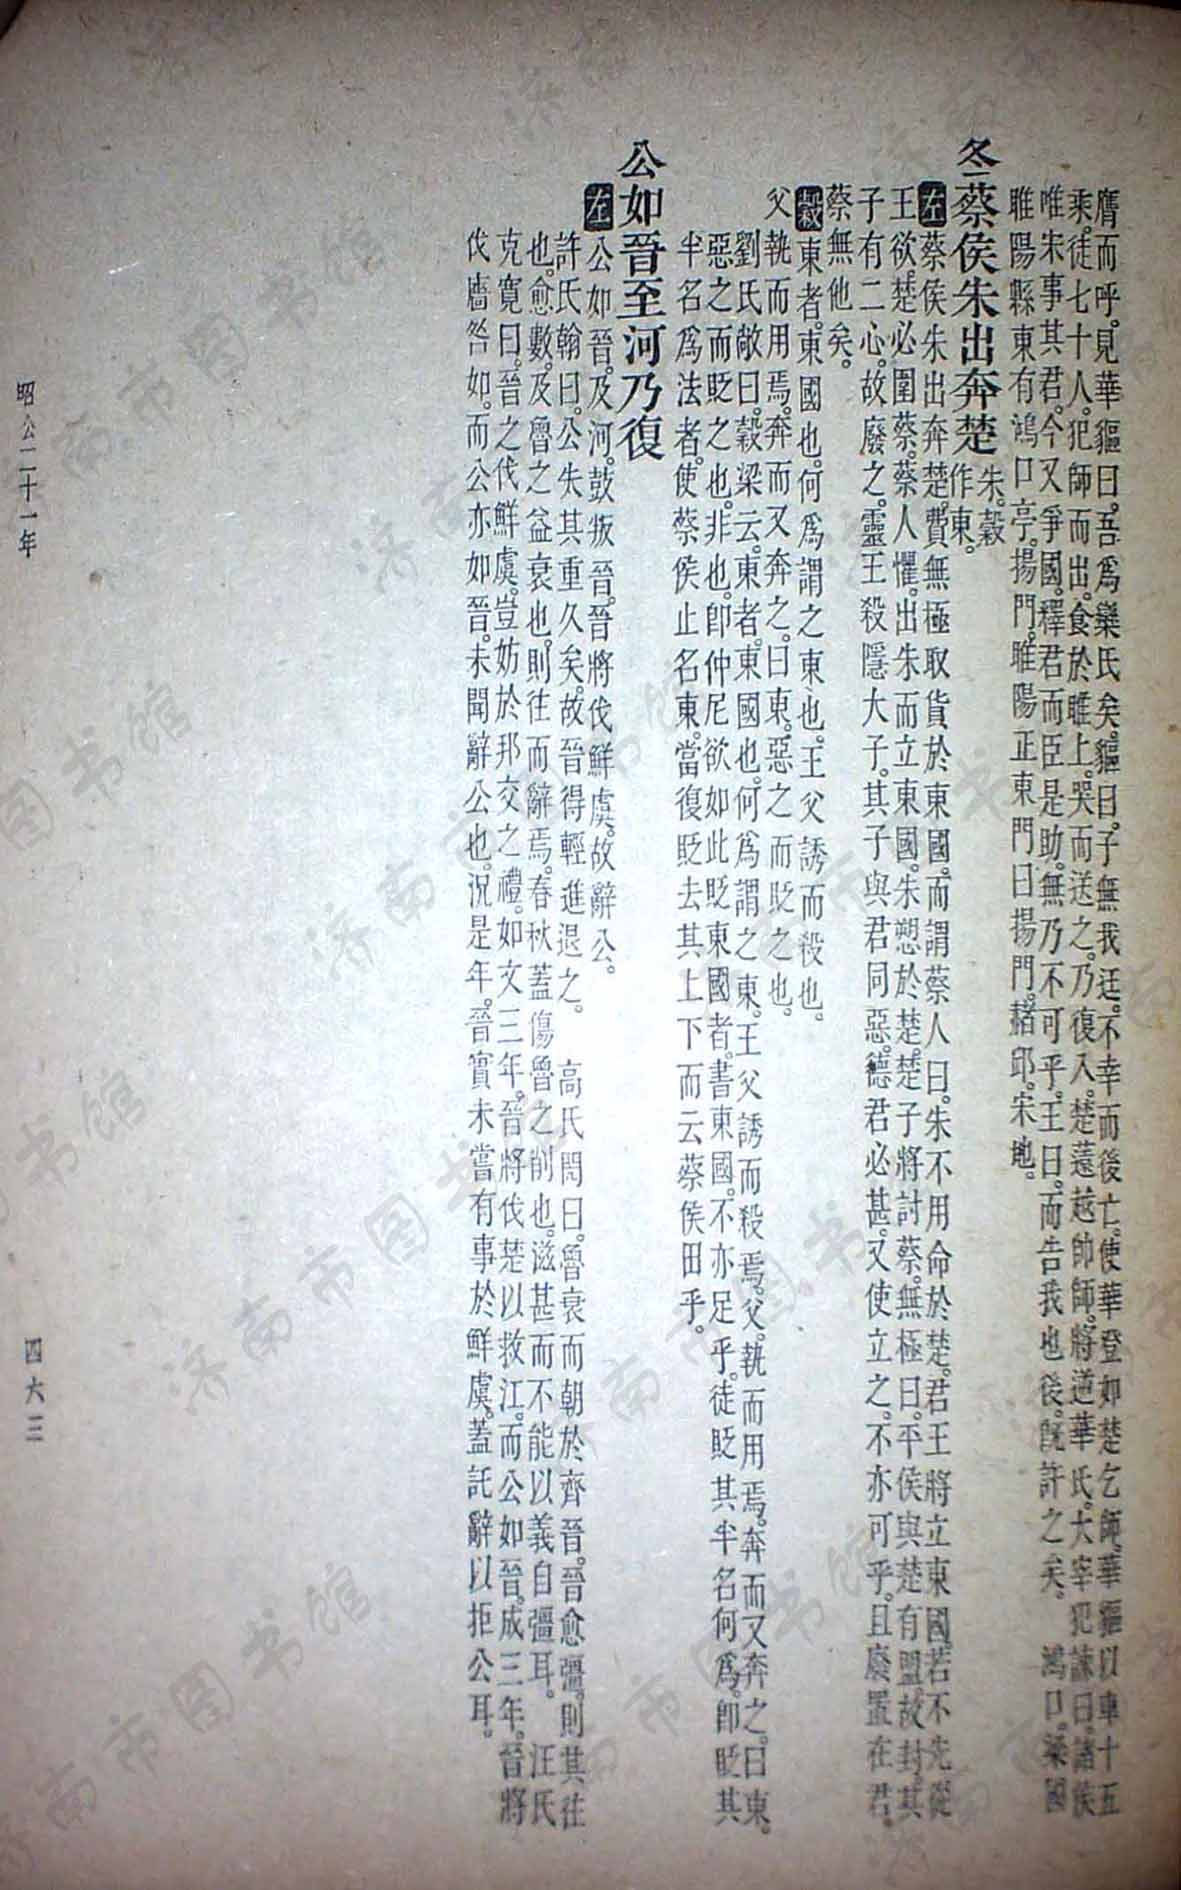 膺而呼。見華貙曰。吾爲欒氏矣。貙曰。子無我迋。不幸而後亡。使華登如楚乞師。華貙以車十五
乘。徒七十人。犯師而出。食於睢上。哭而送之。乃復入。楚薳越帥師。將逆華氏。大宰犯諫曰。諸侯
唯宋事其君。今又爭國。釋君而臣是助。無乃不可乎。王曰。而告我也後。旣許之矣。　鴻口。梁國
睢陽縣東有鴻口亭。揚門。睢陽正東門曰揚門。赭邱。宋地。
冬。蔡侯朱出奔楚 朱。穀作東。
左 蔡侯朱出奔楚。費無極取貨於東國。而謂蔡人曰。朱不用命於楚。君王將立東國。若不先從
王欲。楚必圍蔡。蔡人懼。出朱而立東國。朱愬於楚。楚子將討蔡。無極曰。平侯與楚有盟。故封。其
子有二心。故廢之。靈王殺隱大子。其子與君同惡。德君必甚。又使立之。不亦可乎。且廢置在君。
蔡無他矣。
穀 東者。東國也。何爲謂之東也。王父誘而殺也。
父執而用焉。奔而又奔之。曰東。惡之而貶之也。
劉氏敞曰。穀梁云。東者。東國也。何爲謂之東。王父誘而殺焉。父。執而用焉。奔而又奔之。曰東。
惡之而貶之也。非也。卽仲尼欲如此貶東國者。書東國。不亦足乎。徒貶其半名何爲。卽貶其
半名爲法者。使蔡侯止名東。當復貶去其上下而云蔡侯田乎。
公如晉至河乃復
左 公如晉。及河。鼓叛晉。晉將伐鮮虞。故辭公。
許氏翰曰。公失其重久矣。故晉得輕進退之。　高氏閌曰。魯衰而朝於齊晉。晉愈彊。則其往
也愈數。及魯之益衰也。則往而辭焉。春秋蓋傷魯之削也。滋甚而不能以義自彊耳。　汪氏
克寬曰。晉之伐鮮虞。豈妨於邦交之禮。如文三年。晉將伐楚以救江。而公如晉。成三年。晉將
伐廧咎如。而公亦如晉。未聞辭公也。況是年。晉實未嘗有事於鮮虞。蓋託辭以拒公耳。
昭公二十一年
四六三